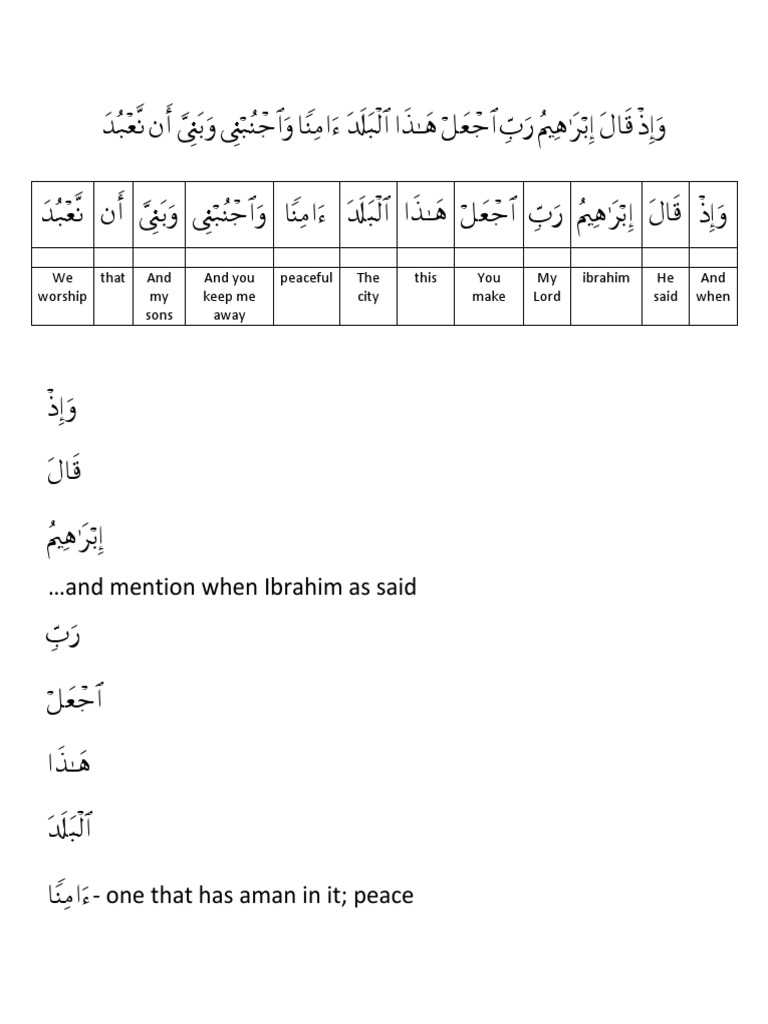 وَإِذۡ قَالَ إِبۡرَٰهِيمُ رَبِّ ٱجۡعَلۡ هَـٰذَا ٱلۡبَلَدَ ءَامِنًا وَٱجۡنُبۡنِى وَبَنِىَّ أَن نَّعۡبُدَ
وَإِذۡ قَالَ إِبۡرَٰهِيمُ رَبِّ ٱجۡعَلۡ هَـٰذَا ٱلۡبَلَدَ ءَامِنًا وَٱجۡنُبۡنِى وَبَنِىَّ أَن نَّعۡبُدَ
We worship that And my sons And you keep me away peaceful The city this You make My Lord ibrahim He said And when
وَإِذۡ
قَالَ
إِبۡرَٰهِيمُ
…and mention when Ibrahim as said
رَبِّ
ٱجۡعَلۡ
هَـٰذَا
ٱلۡبَلَدَ
ءَامِنًا- one that has aman in it; peace